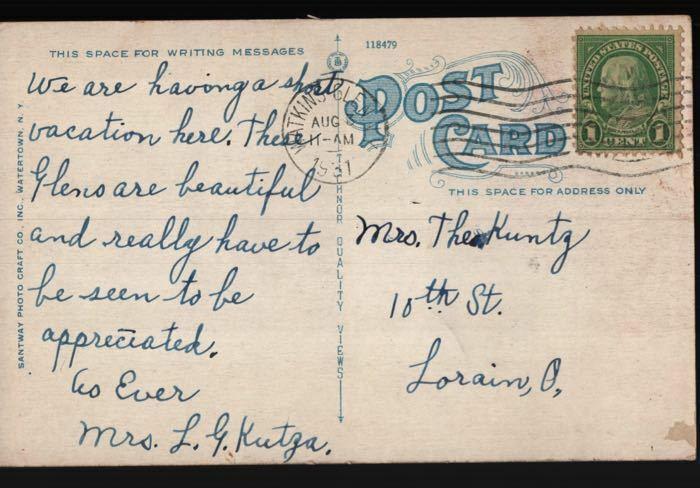 THIS SPACE FOR WRITING MESSAGES
We are having a short
vacation here. These
Glens are beautiful
and really have to
be seen to be
appreciated.
As Ever
Mrs. L. G. Kutza.
SANTWAY PHOTO CRAFT CO., INC., WATERTOWN, N. Y.
118479
POST
CARD
THIS SPACE FOR ADDRESS ONLY
QUALITY VIEWS
WATKINS GLEN
AUG
11-AM
1931
UNITED STATES POSTAGE
1 CENT 1
Mrs. Theo Kuntz
10th St.
Lorain, O,